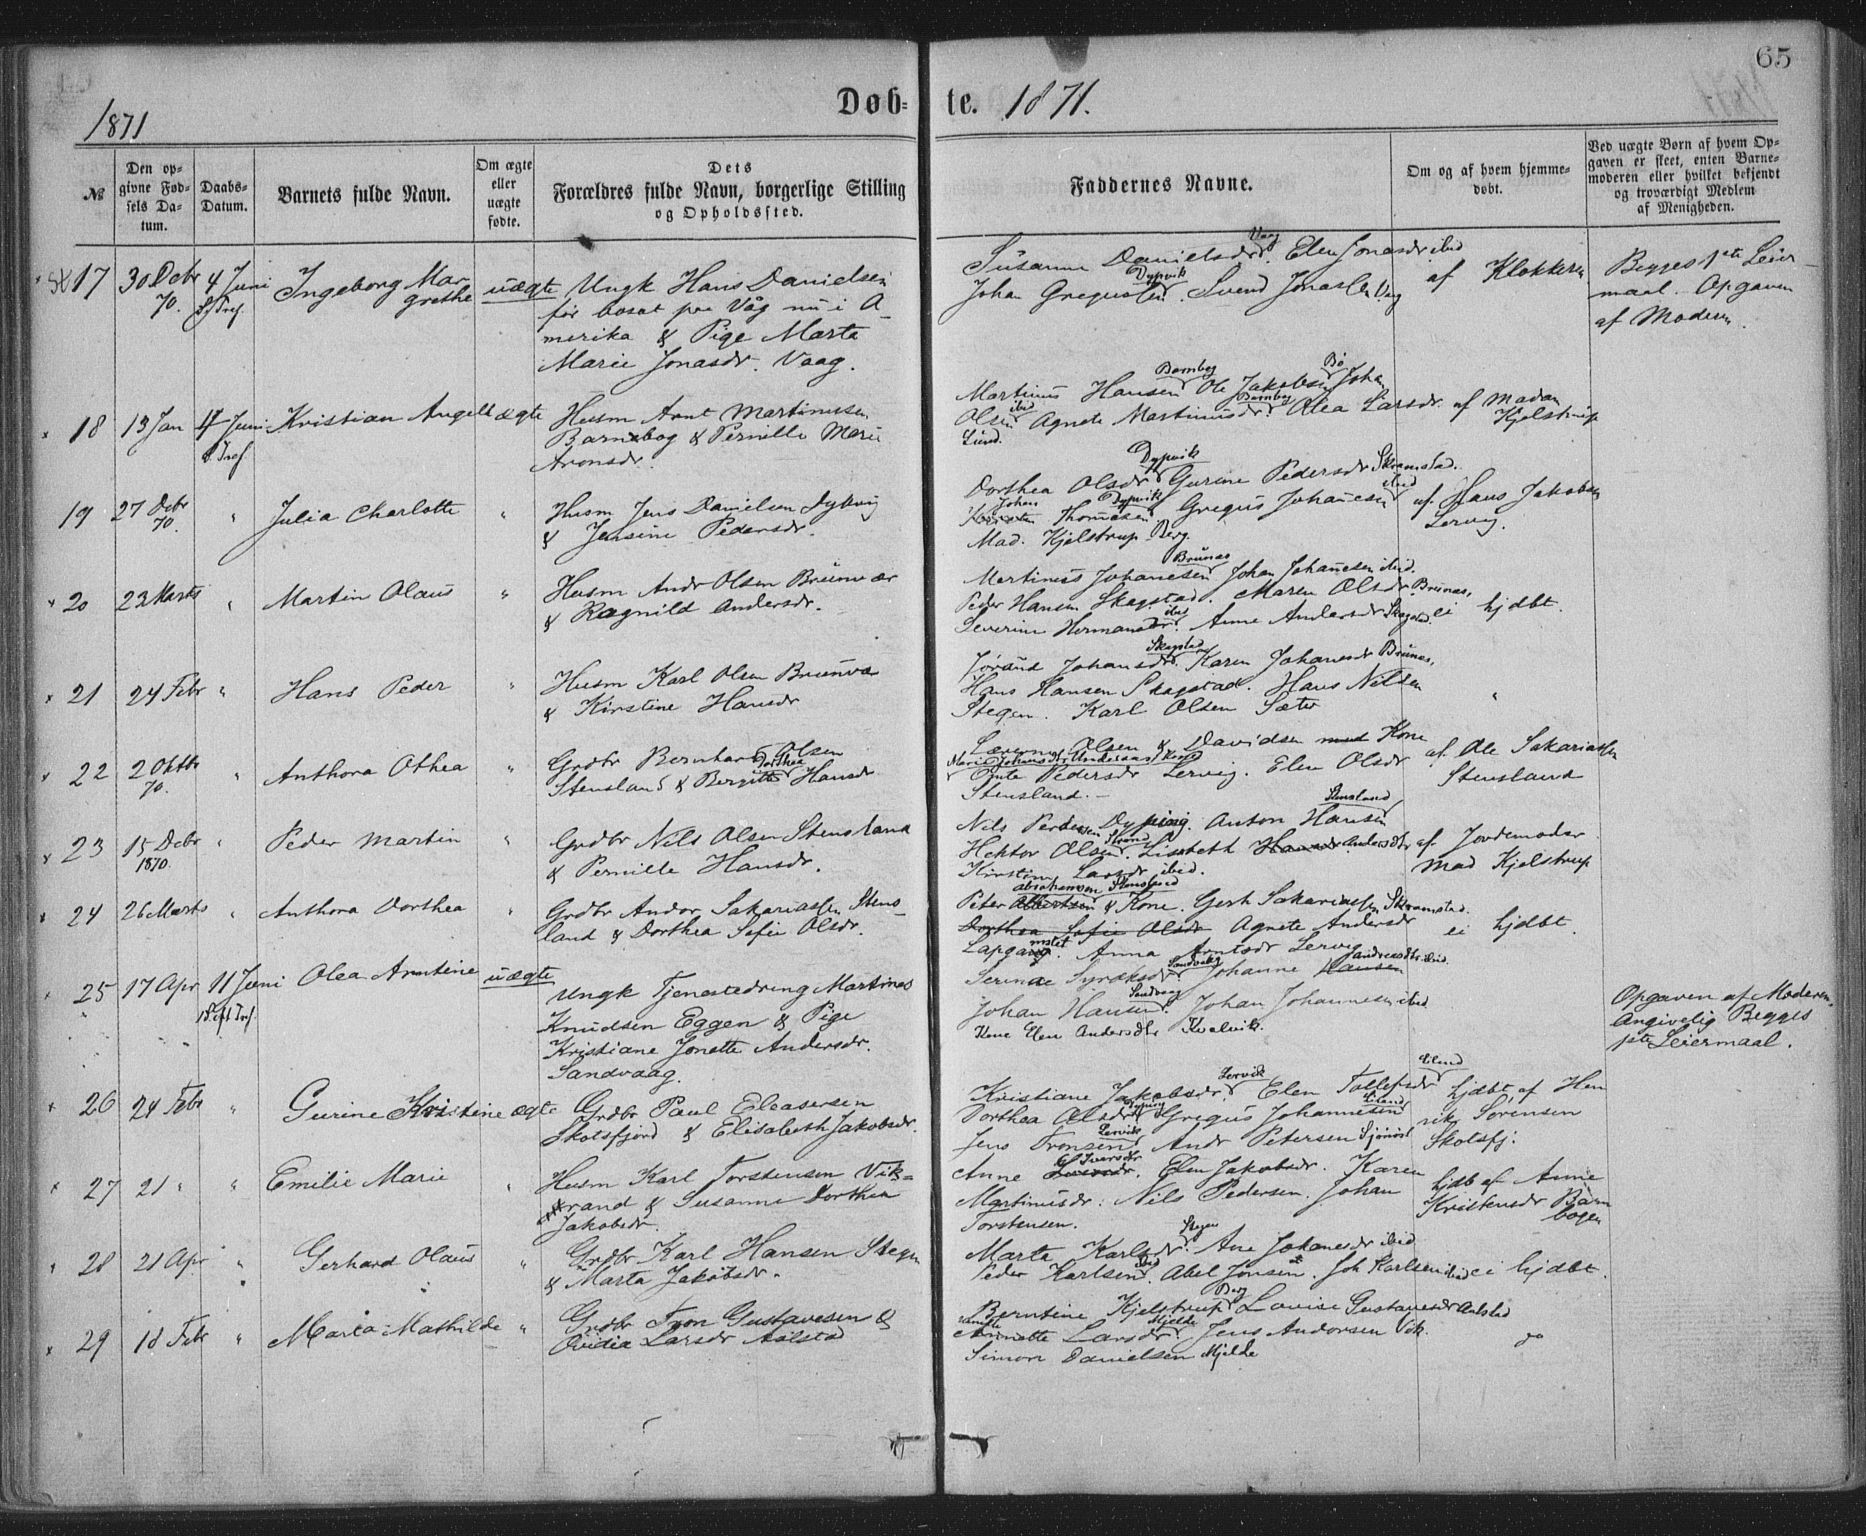 65
Døb=
te. 1871.
1871
№
Den op-
givne Fød-
sels Da-
tum.
Daabs-
Datum.
Barnets fulde Navn.
Om ægte
eller
uægte
fødte.
Dets
Forældres fulde Navn, borgerlige Stilling
og Opholdssted.
Faddernes Navne.
Om og af hvem hjemme-
døbt.
Ved uægte Børn af hvem Op-
gaven er skeet, enten Barne-
moderen eller hvilket bekjendt
og troværdigt Medlem
af Menigheden.
17 30 Debr 70. 4 Juni Ingeborg Mar-
grethe uægte
Ungk Hans Danielsen
før bosat paa Våg nu i A-
merika & Pige Marta
Marie Jonasdr. Vaag.
Susanne Danielsdr Vaag. Elen Jonasdr ibid
Johan Gregusen Dypvik. Svend Jonassen Vaag
af Klokkeren
Begges 1ste Leier
maal. Opgaven
af Moderen.
18 13 Jan 4 Juni Kristian Angell ægte
Husm Arnt Martinussen
Barnebog & Pernille Marie
Aronsdr.
Martinus Hansen Barnbog Ole Jakobsen Bø Johan
Olsen ibid Agnete Martinusdr Barnbog Olea Larsdr
Lund.
af Madam
Kjelstrup
19 27 Debr 70. " Julia Charlotte "
Husm Jens Danielsen Dybvig
& Jensine Pedersdr.
Dorthea Olsdr Dypvik Gurine Pedersdr Skramstad.
Johan Thomesen Dypvik Gregus Johanesen ibid
Mad. Kjelstrup Berg.
af Hans Jakobsen
Lervig.
20 23 Marts " Martin Olaus "
Husm Andr Olsen Brunvær
& Ragnild Andersdr.
Martinus Johanesen Brunæs Johan Johanesen ibid.
Peder Hansen Skagstad. Maren Olsdr Brunæs,
Severine Hermansdr ibid. Anne Andersdr Skagstad.
ei hjdbt.
21 24 Febr " Hans Peder "
Husm Karl Olsen Brunvær
& Kirstine Hansdr
Jørand Johansdr Skagstad. Karen Johanesdr Brunæs,
Hans Hansen Skagstad. Hans Nilsen
Stegen. Karl Olsen Sæter
"
22 2 Oktbr 70. " Anthora Othea "
Grdbr Bernhard Olsen
Stensland & Bergitte Dorthea Hansdr
Lærerne Olsen & Davidsen med Kone
Pedersdr Lervig. Elen Olsdr
Stensland.
af Ole Sakariassen
Stensland
23 15 Debr 1870. " Peder Martin "
Grdbr Nils Olsen Stensland
& Pernille Hansdr.
Nils Pedersen Dyping. Anton Hansen Stensland
Hektor Olsen Strand. Lisbeth Hansdr Andersdtr
Kirstine Larsdr ibid.
af Jordemoder
Mad Kjelstrup
24 26 Marts " Anthora Dorthea "
Grdbr Andor Sakariassen Stens-
land & Dorthea Sofie Olsdr.
Peter Albertsen Abrahamsen Stensland & Kone. Gert Sakariassen Skramstad.
Dorthea Sofie Olsdr Agnete Andersdr
Anna Arntsdr Lervig
ei hjdbt.
25 17 Apr 11 Juni Olea Arntine uægte
Ungk Tjenestedreng Martines
Knudsen Eggen & Pige
Kristiane Jonette Andersdr.
Sandvaag.
Serine Syraksdr Sandvaag Johanne Hansen Andreasdtr ibid.
Johan Hansen Sandvaag. Johan Johannesen ibid
Kone Elen Andersdtr Kvalvik.
Opgaven af Moderen.
Angivelig Begges
1ste Leiermaal.
26 24 Febr " Gurine Kristine ægte
Grdbr Paul Eleasersen
Skotsfjord & Elisabeth Jakobsdr.
Kristiane Jakobsdr Lervik. Elen Tollefsdr Liland
Dorthea Olsdr Dyping Gregus Johannesen Liland
Jens Tronsen Lervik Andr Petersen
hjdbt af Hen
rik Sørensen
Skotsfj.
27 21 " " Emilie Marie "
Husm Karl Torstensen Vik=
strand & Susanne Dorthea
Jakobsdr.
Anne Iversdtr. Elen Jakobsdr. Karen
Martinusdr. Nils Pedersen. Johan
Torstensen.
hjdb af Anne
Kristensdr Barn
bogen
28 21 Apr " Gerhard Olaus "
Grdbr Karl Hansen Stegen
& Marta Jakobsdr.
Marta Karlsdr Stegen. Ane Johanesdr ibid
Peder Karlsen ibid. Abel Jonsen. Joh Karlsen ibid
ei hjdbt.
29 18 Febr " Maria Mathilde "
Grdbr Tron Gustavesen &
Ovidia Larsdr Aalstad
Berntine Kjelstrup Berg Lovise Gustavesdr Aalstad
Annette Larsdr Mjelde Jens Andorsen Vik.
Simon Danielsen Mjelde